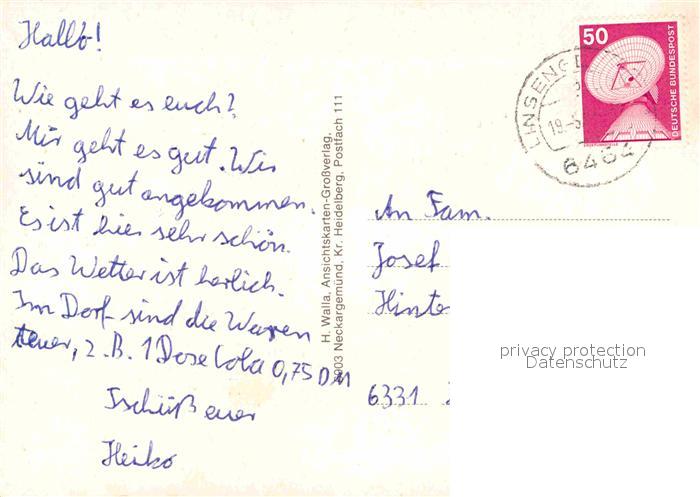 Hallo!
Wie geht es euch?
Mir geht es gut. Wir
sind gut angekommen.
Es ist hier sehr schön.
Das Wetter ist herlich.
Im Dorf sind die Waren
teuer, z.B. 1 Dose Cola 0,75 DM
Tschüß euer
Heiko
H. Walla, Ansichtskarten-Großverlag,
6903 Neckargemünd, Kr. Heidelberg, Postfach 111
50
DEUTSCHE BUNDESPOST
LINSENGE
6464
An Fam.
Josef
Hinte
6331
privacy protection
Datenschutz